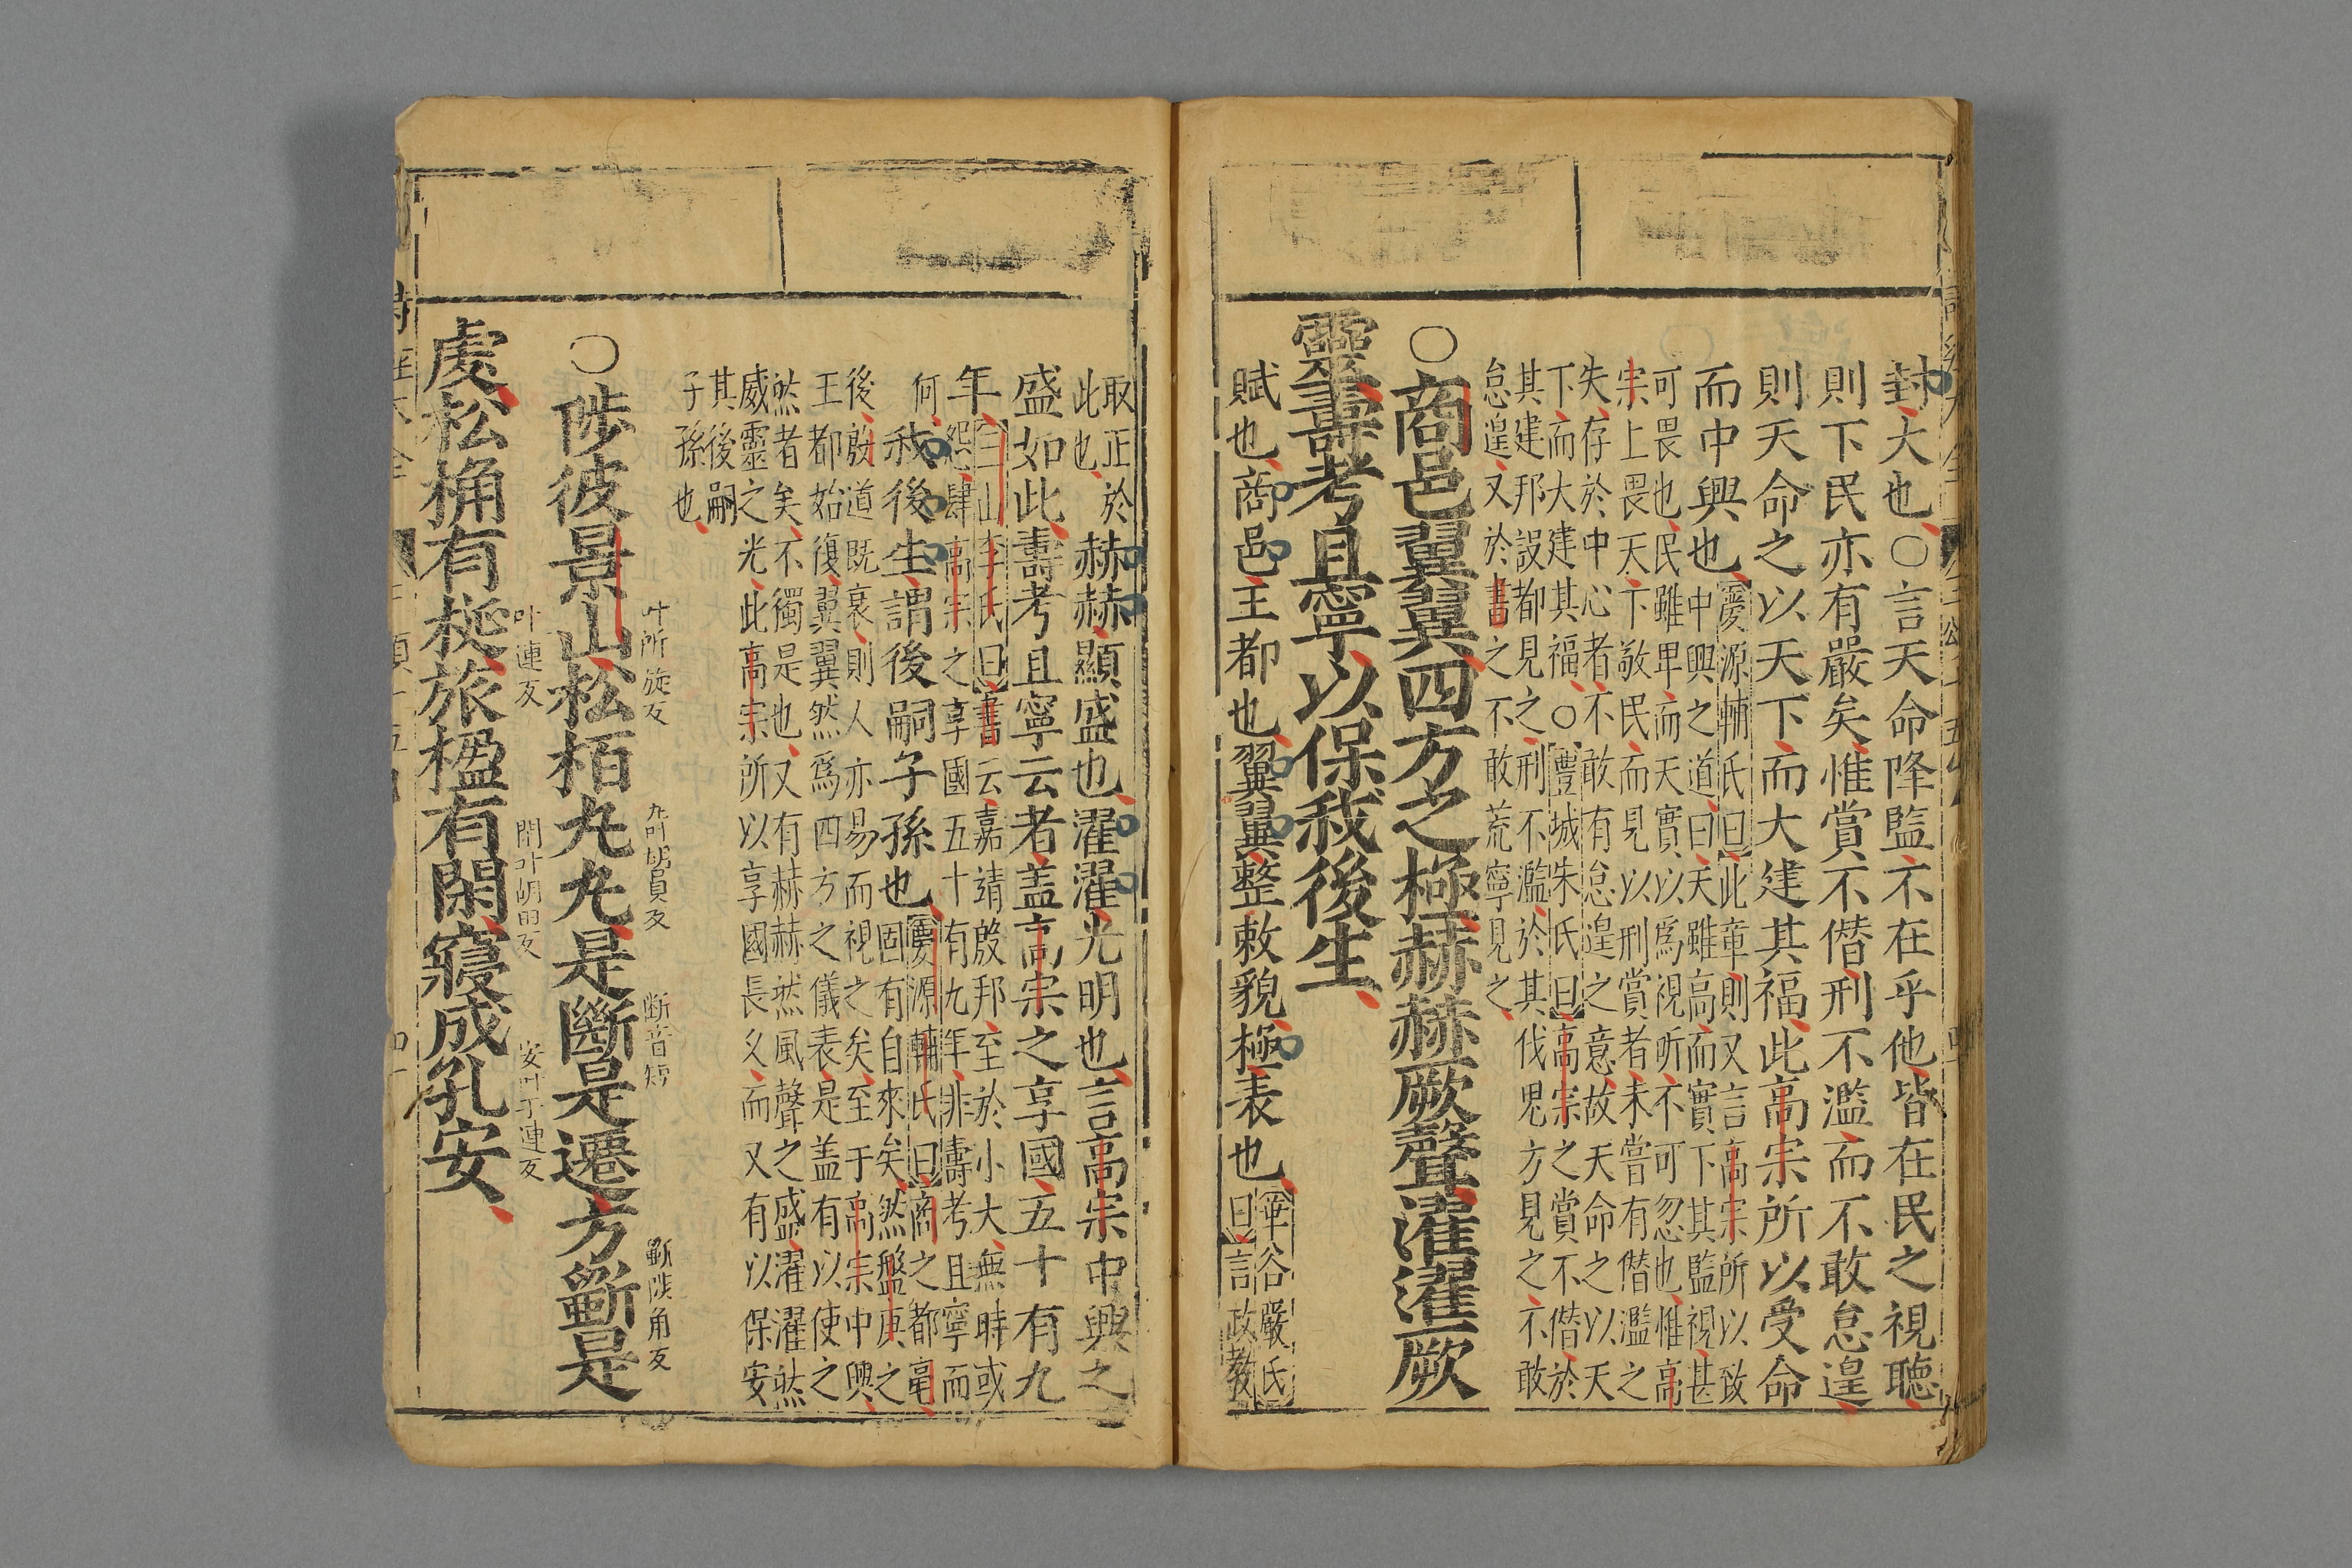 封大也○言天命降監不在乎他皆在民之視聽
則下民亦有嚴矣惟賞不僭刑不濫而不敢怠遑
則天命之以天下而大建其福此高宗所以受命
而中興也
慶源輔氏曰此章則又言高宗所以致
中興之道曰天雖高而實下其監視甚
可畏也民雖卑而天實以爲視听不可忽也惟高
宗上畏天下敬民而見以刑賞者未嘗有僭濫之
失存於中心者不敢有怠遑之意故天命之以天
下而大建其福○豊城朱氏曰高宗之賞不僭於
其建邦設都見之刑不濫於其伐鬼方見之不敢
怠遑又於書之不敢荒寧見之
○商邑翼翼四方之極赫赫厥聲濯濯厥
靈壽考且寧以保我後生
賦也商邑王都也翼翼整敕貌極表也
華谷嚴氏
曰言政教
取正於
此也
赫赫顯盛也濯濯光明也言高宗中興之
盛如此壽考且寧云者盖高宗之享國五十有九
年
三山李氏曰書云嘉靖殷邦至於小大無時或
怨肆高宗之享國五十有九年非壽考且寧而
何
我後生謂後嗣子孫也
慶源輔氏曰商之都亳
固有自來矣然盤庚之
後殷道既衰則人亦易而視之矣至于高宗中興
王都始復翼翼然爲四方之儀表是盖有以使之
然者矣不獨是也又有赫赫然風聲之盛濯濯然
威靈之光此高宗所以享國長久而又有以保安
其後嗣
子孫也
○陟彼景山松栢丸丸是斷是遷方斲是
叶所旋反
丸叶胡員反
断音短
斲陟角反
虔松桷有梴旅楹有閑寢成孔安
叶連反
閑叶胡田反
安叶于連反